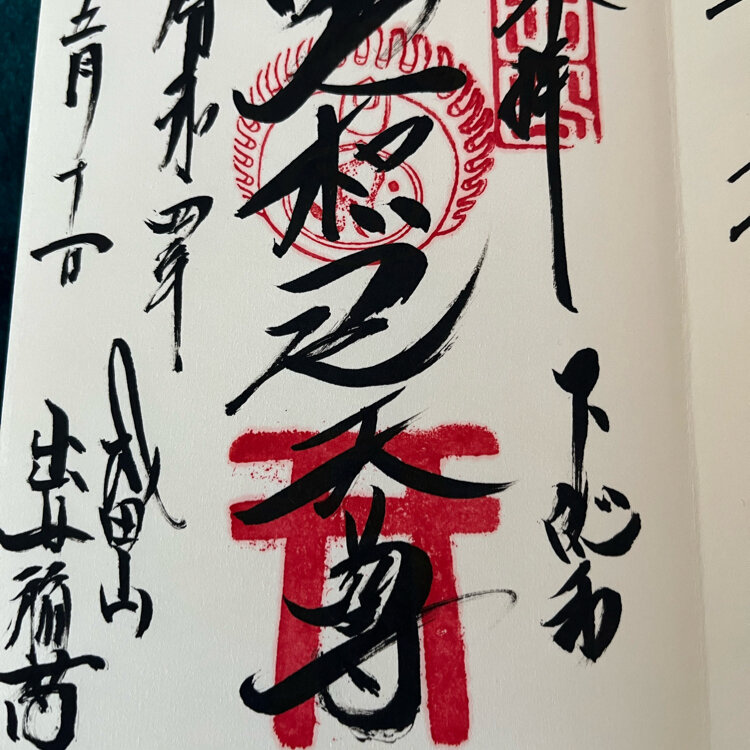 奉拝
下総
枳尼天尊
令和四年
成田山
五月十一日
出世稲荷